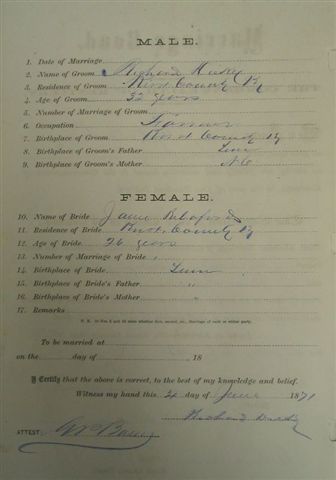 MALE.
1. Date of Marriage
2. Name of Groom Richard
3. Residence of Groom Knox County Ky
4. Age of Groom 32 years
5. Number of Marriage of Groom
6. Occupation Farmer
7. Birthplace of Groom Knox County Ky
8. Birthplace of Groom's Father Tenn
9. Birthplace of Groom's Mother N C
FEMALE.
10. Name of Bride
11. Residence of Bride Knox County Ky
12. Age of Bride 26 years
13. Number of Marriage of Bride
14. Birthplace of Bride Tenn
15. Birthplace of Bride's Father "
16. Birthplace of Bride's Mother "
17. Remarks
To be married at
on the day of 18
I Certify that the above is correct, to the best of my knowledge and belief.
Witness my hand this 2 day of June 1871
Richard
ATTEST